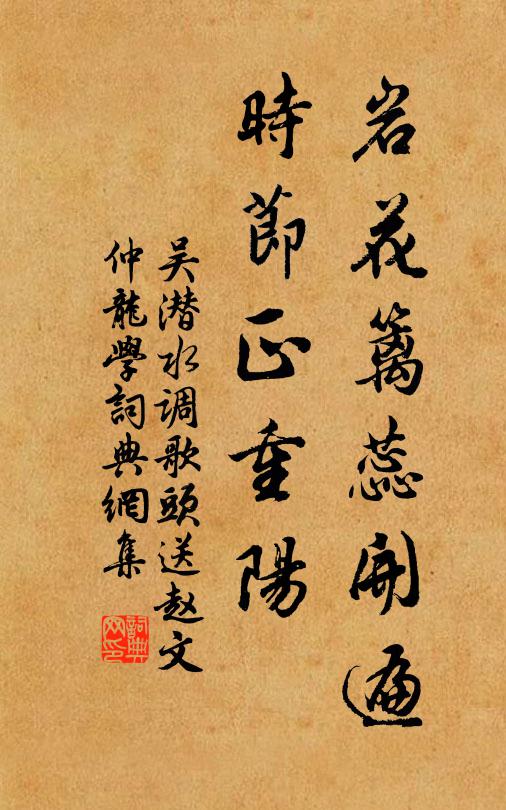 岩花篱蕊开遍
時節正重陽
吴潜水调歌頭送赵文
仲龍學詞典網集
詞典网印